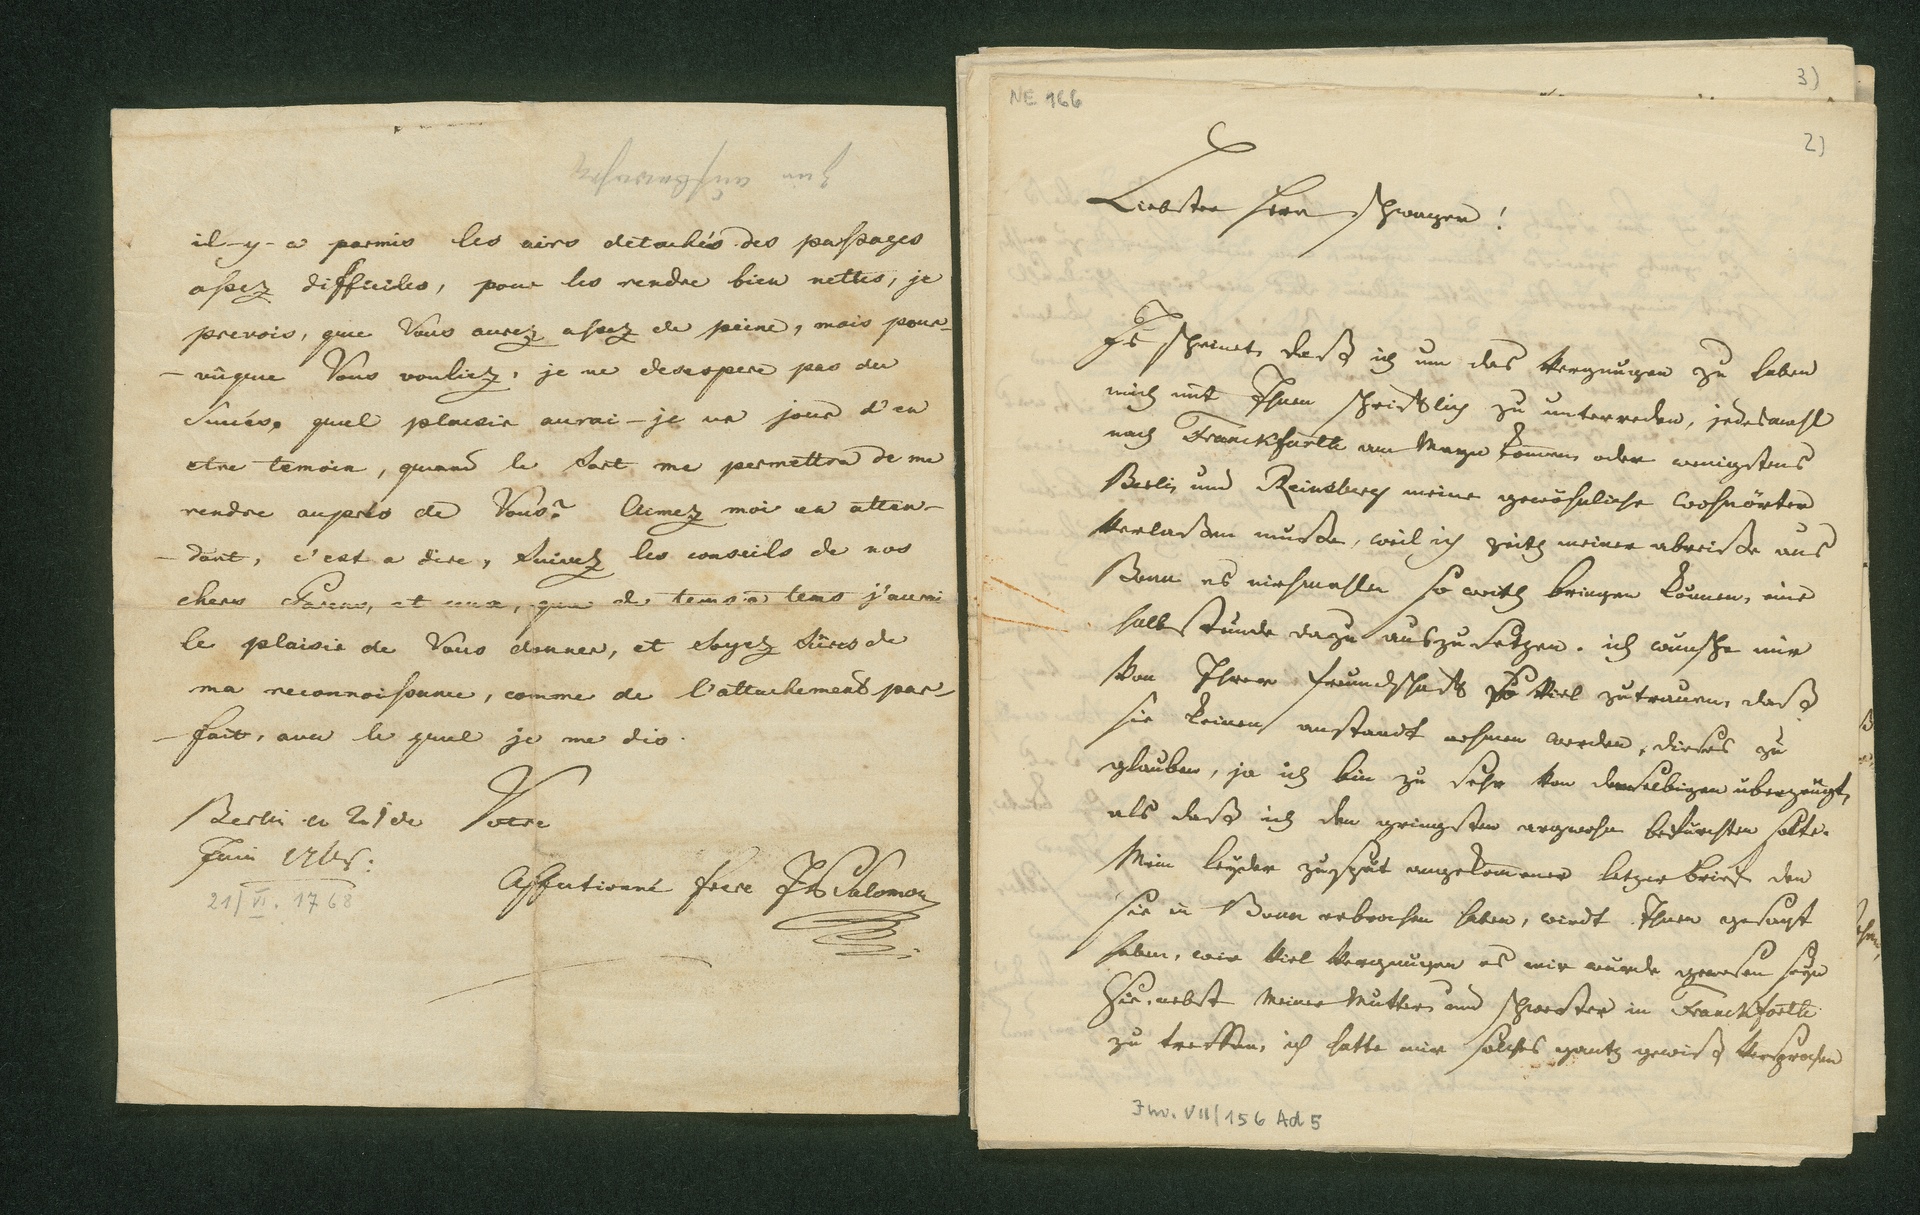 il-y-a parmis les airs detachés des passages
assez difficiles, pour les rendre bien nettes, je
prevois, que Vous aurez assez de peine, mais pour-
-vûque Vous vouliez, je ne desespere pas du
Succés. quel plaisir aurai-je un jour d'en
etre temoin, quand le Sort me permettra de me
rendre auprés de Vous? Aimez moi en atten-
-dant, c'est a dire, Suivez les conseils de nos
chers Parens, et ceux, que de tems à tems j'aurai
le plaisir de Vous donner, et soyez Sûres de
ma reconnoissance, comme de l'attachement par-
-fait, avec le quel je me dis.
Berlin ce 21 de Votre
Juin 1768.
21/VI. 1768
Affectionné frere JPSalomon
NE 166
3)
2)
Liebster Herr Schwager!
Es scheinet, daß ich um das Vergnugen zu haben
mich mit Ihnen schriftlich zu unterreden, jedesmahl
nach Franckfurth am Mayn kommen oder wenigstens
Berlin und Reinsberg meine gewöhnliche wohnörter
Verlaßen muße, weil ich zeith meiner abreiße aus
Bonn es niehmahlen so weith bringen können, eine
halbe stunde dazu auszusetzen. ich wunsche mir
Von Ihrer freundschafft so Viel zutrauen, daß
sie keinen anstandt nehmen werden, dieses zu
glauben, ja ich bin zu sehr Von derselbigen uberzeugt,
als daß ich den gringsten argwohn befürchten solte.
Mein leyder zu spät angekommener letzer brief den
sie in Bonn erbrochen haben, wirdt Ihnen gesagt
haben, wie Viel Vergnugen es mir wurde gewesen seyn
Sie nebst Meiner Mutter und Schwester in Franckforth
zu treffen, ich hatte mir solches gantz gewiß Versprochen
Inv. VII/156 Ad 5